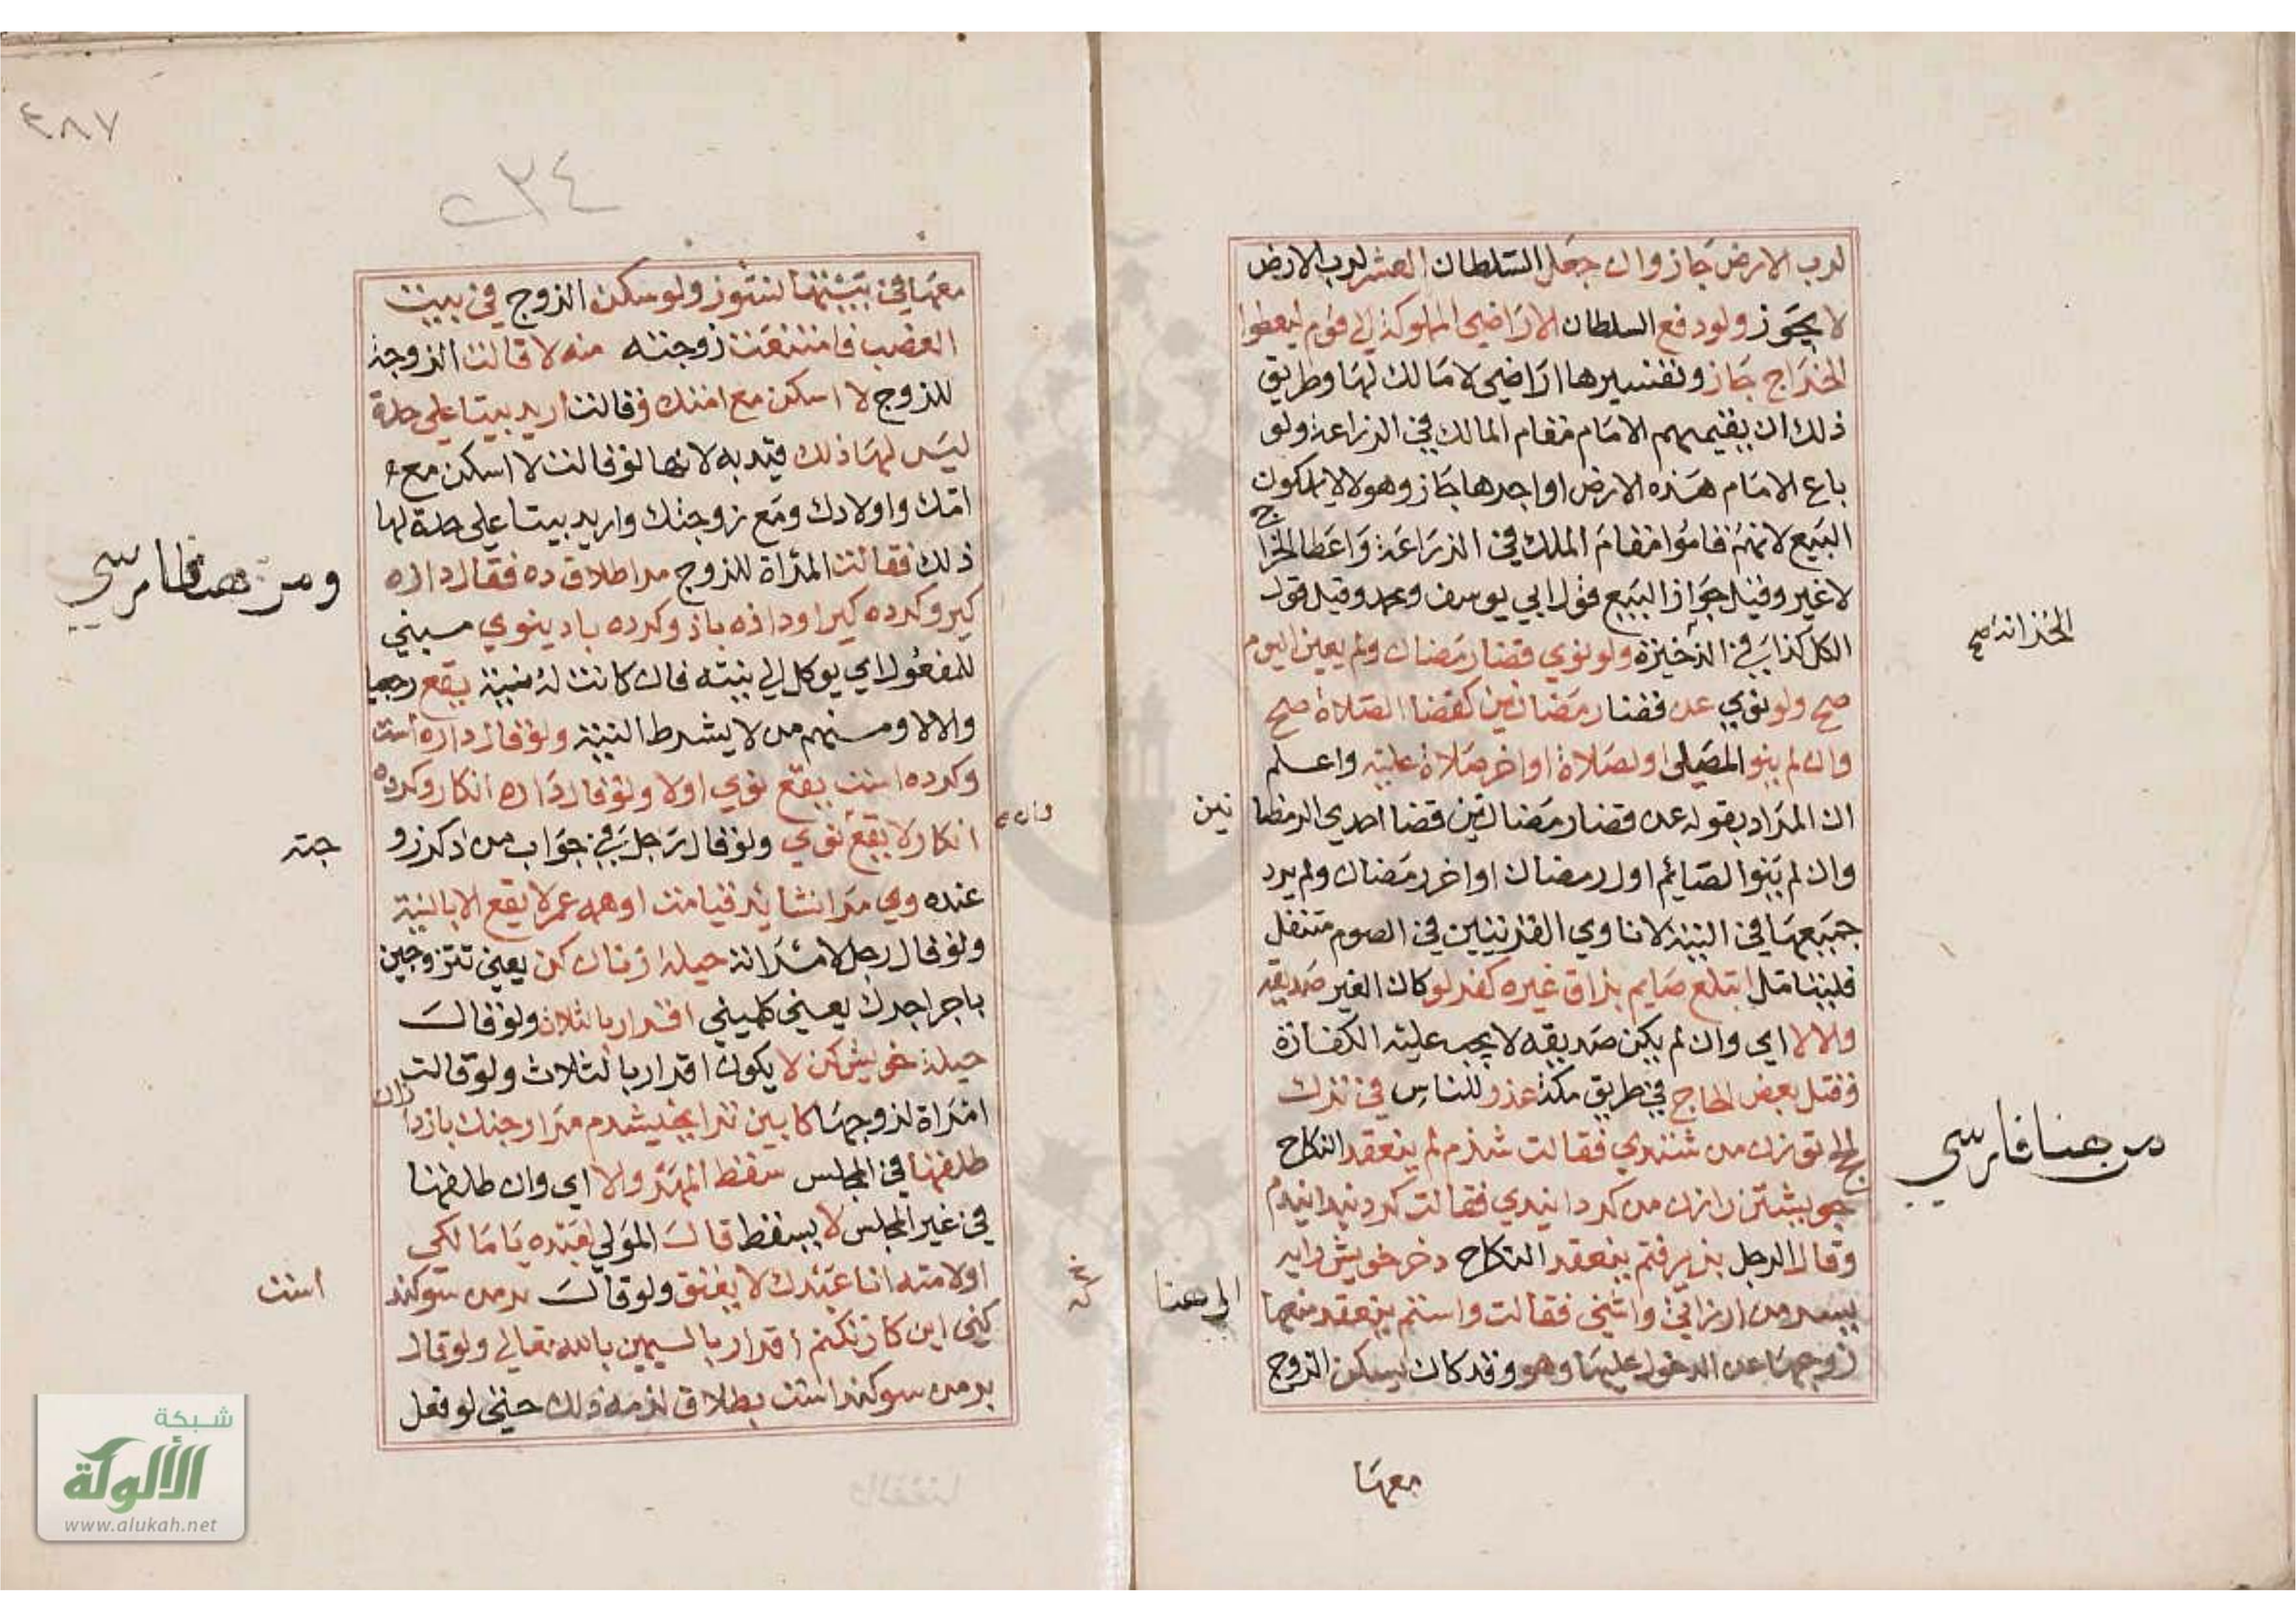 لرب الارض جاز وان جعل السلطان العشر لرب الارض
لا يجوز ولو دفع السلطان الاراضي المملوكة الي قوم ليعطوا
الخراج جاز وتفسيرها اراضي لا مالك لها وطريق
ذلك ان يقيمهم الامام مقام المالك في الزراعة ولو
باع الامام هذه الارض او اجرها جاز وهولا لا يملكون
البيع لانهم قاموا مقام الملك في الزراعة واعطا الخراج
لا غير وقيل جواز البيع قول ابي يوسف ومحمد وقيل قول
الكل كذا في الذخيرة ولو نوي قضا رمضان ولم يعين اليوم
الخزانة صح
صح ولو نوي عن قضا رمضانين كقضا الصلاة صح
وان لم ينو المصلي اول صلاة او اخر صلاة عليه واعلم
ان المراد بقوله عن قضا رمضانين قضا احدي الرمضا
نين
وان لم ينوا الصايم اول رمضان او اخر رمضان ولم يرد
جميعها في النية لا ناوي القربتين في الصوم متنفل
فليتامل ابتلع صايم بزاق غيره كفر لو كان الغير صديقه
والا لا اي وان لم يكن صديقه لا يجب عليه الكفارة
وقتل بعض الحاج في طريق مكة عذر للناس في ترك
الحج تو زن من شندي فقالت شدم لم ينعقد النكاح
من هنا فارسي
وقال الرجل بذيرفتم ينعقد النكاح دختر خويش را
الي هنا
زوجها عن الدخول عليها وهو وقد كان يسكن الزوج
معها
٣٨٧
معها في بيتها نشوز ولو سكن الزوج في بيت
الغصب فامتنعت زوجته منه لا قالت الزوجة
للزوج لا اسكن مع امتك وقالت اريد بيتا علي حدة
ليس لها ذلك قيد به لانها لو قالت لا اسكن مع
امك واولادك ومع زوجتك واريد بيتا علي حدة لها
ذلك فقالت المراة للزوج مرا طلاق ده فقال داده
ومن هنا فارسي
كير وكرده كير او داده باذ وكرده باد ينوي مبني
للمفعول اي يوكل الي نيته فان كانت له نية يقع رجعيا
والا لا ومنهم من لا يشرط النية ولو قال داده است
وكرده است يقع نوي اولا ولو قال داده انكار وكرده
انكار لا يقع نوي ولو قال رجل في جواب من ذكر زو
جته
عنده وي مرا نشايد تا قيامت او همه عمر لا يقع الا بالنية
ولو قال رجل لامراته حيلة زنان كن يعني تتزوجين
باجر اجرك يعني كلميني اقرار بالثلاث ولو قال
حيلة خويش كن لا يكون اقرار بالثلاث ولو قالت
امراة لزوجها كابين ترا بخشيدم مرا از جنك بازدار
طلقها في المجلس سقط المهر والا اي وان طلقها
في غير المجلس لا يسقط قال المولي لعبده يا مالكي
او لامته انا عبدك لا يعتق ولو قال بر من سوكند
است
كي اين كار نكنم اقرار باليمين بالله تعالي ولو قال
بر من سوكند است بطلاق لزمه ذلك حتي لو فعل
شبكة
الألوكة
www.alukah.net